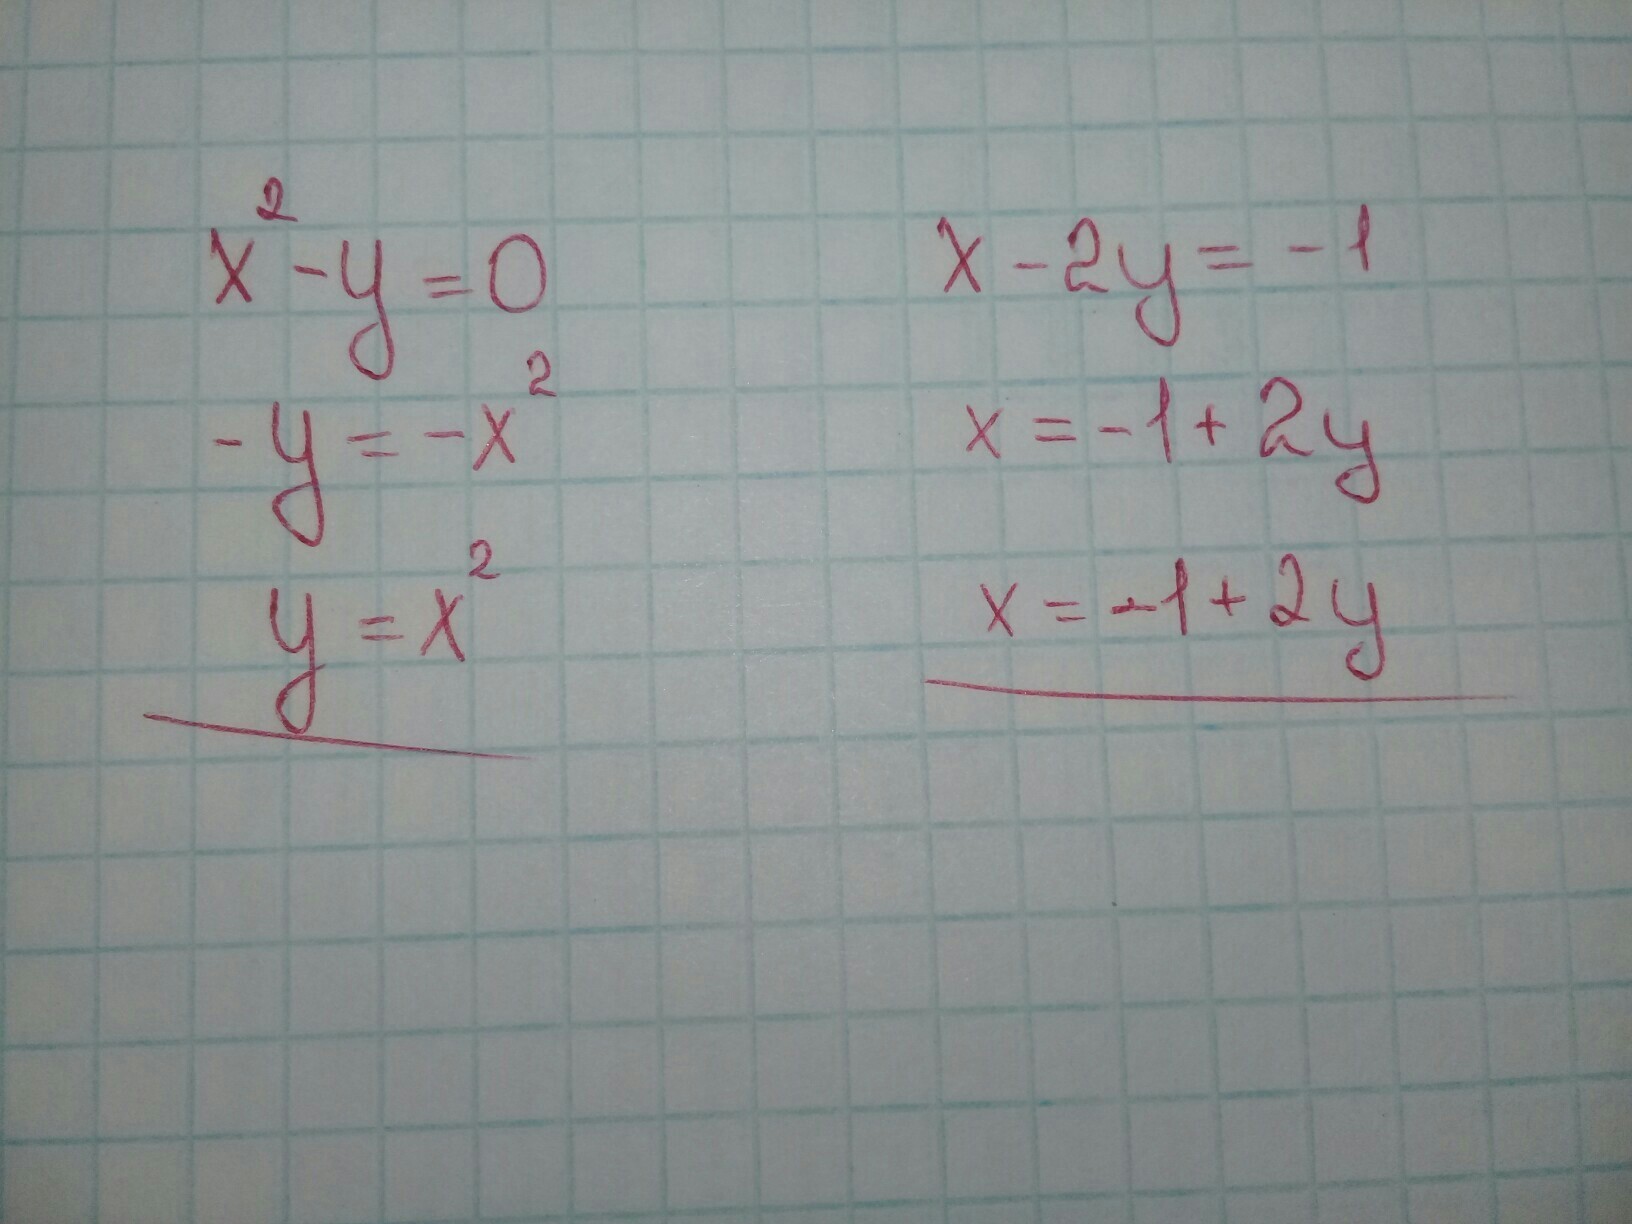 x² - y = 0
-y = -x²
y = x²
x - 2y = -1
x = -1 + 2y
x = -1 + 2y